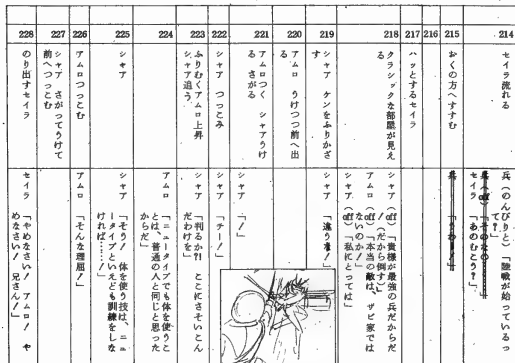 214
セイラ流れる
兵（のんびりと）「陸戦が始っているっ
て？」
兵（off）
セイラ「あのむこう？」
215
おくの方へすすむ
兵
216
217
ハッとするセイラ
218
クラシックな部屋が見え
る
シャア（off）「貴様が最強の兵だからだ
！（だから倒す」
アムロ（off）「本当の敵は、ザビ家では
ないのか！」
シャア（off）「私にとっては」
219
シャア ケンをふりかざ
す
シャア「違う者！」
220
アムロ うけつつ前へ出
る
221
アムロつく シャアうけ
る さがる
シャア「！」
222
シャア つっこみ
シャア「テー！」
223
ふりむくアムロ上昇
シャア追う
シャア「判るか?! ここにさそいこん
だわけを」
224
アムロ「ニュータイプでも体を使うこ
とは、普通の人と同じと思った
からだ」
225
シャア
シャア「そう！ 体を使う技は、ニュ
ータイプといえども訓練をしな
ければ……！」
226
アムロつっこむ
アムロ「そんな理屈！」
227
シャア さがってうけて
前へつっこむ
228
のり出すセイラ
セイラ「やめなさい！ アムロ！ や
めなさい！ 兄さん！」